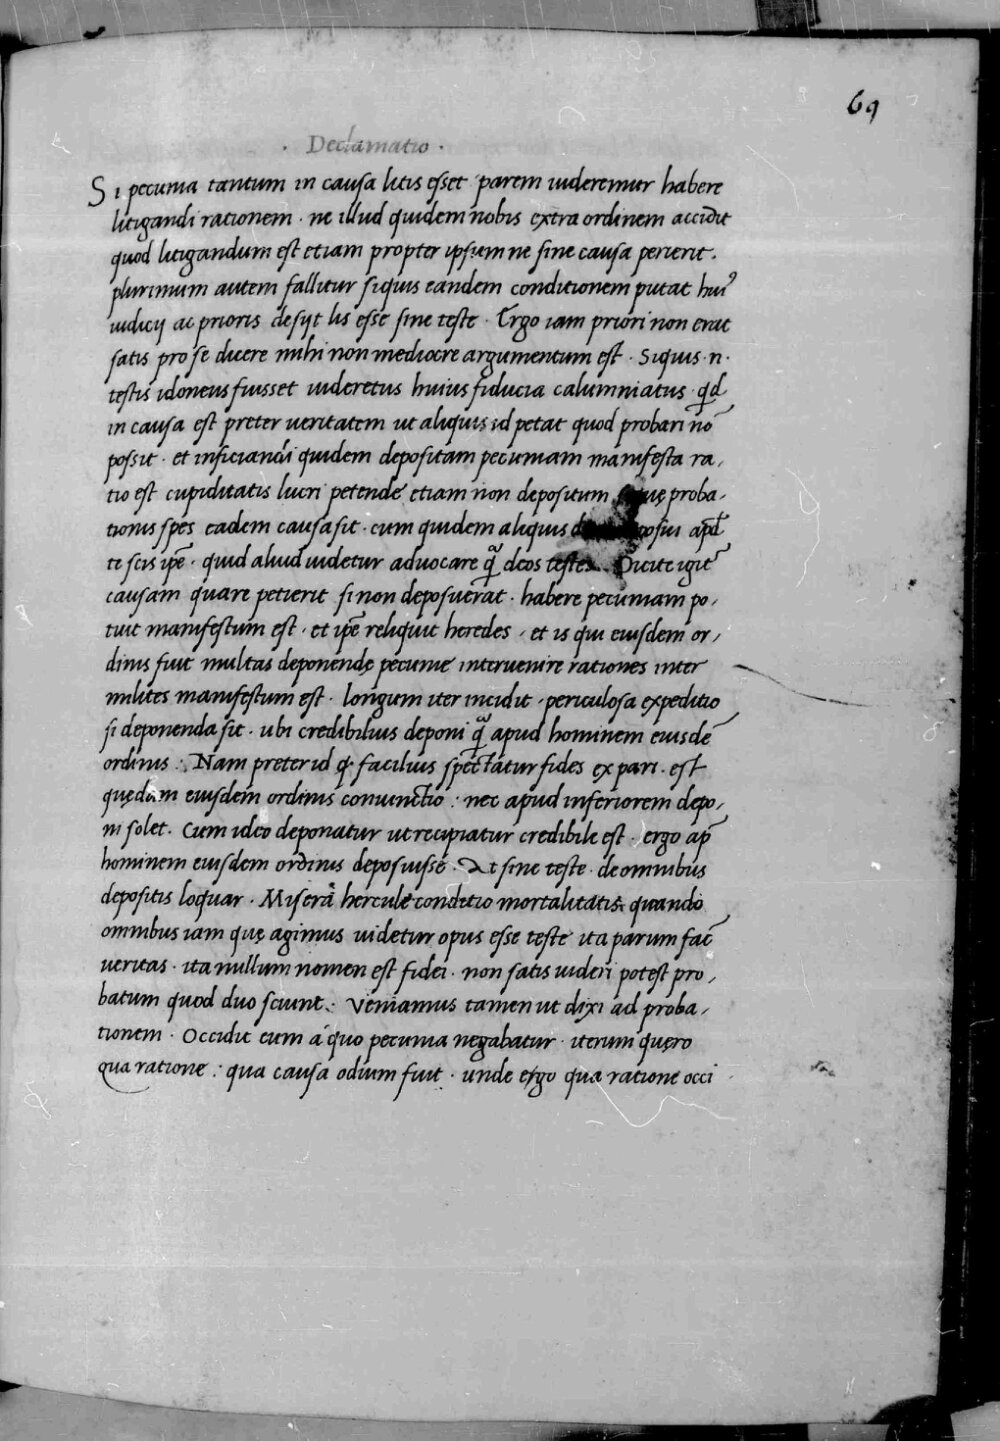 69
· Declamatio ·
Si pecunia tantum in causa litis esset parem uideremur habere
litigandi rationem · ne illud quidem nobis extra ordinem accidit
quod litigandum est etiam propter ipsum ne sine causa perierit .
plurimum autem fallitur siquis eandem conditionem putat hui⁹
iudicij ac prioris desijt lis esse sine teste · Ergo iam priori non erat
satis pro se dicere mihi non mediocre argumentum est · Siquis · n ·
testis idoneus fuisset uideretus huius fiducia calumniatus · qd
in causa est preter ueritatem ut aliquis id petat quod probari nō
possit · et inficiandi quidem depositam pecuniam manifesta ra,
tio est cupiditatis lucri petendę etiam non depositum probа,
tionis spes eadem causa sit · cum quidem aliquis posui apd̄
te scis ipē · quid aliud uidetur aduocare q̄ deos testes Dicite igit̄
causam quare petierit si non deposuerat · habere pecuniam po,
tuit manifestum est · et ipē reliquit heredes , et is qui eiusdem or,
dinis fuit multas deponendę pecunię interuenire rationes inter
milites manifestum est · longum iter incidit , periculosa expeditio
si deponenda sit · ubi credibilius deponi q̄ apud hominem eiusdē
ordinis : Nam preter id q · facilius spectatur fides ex pari · est
quędam eiusdem ordinis conuinctio : nec apud inferiorem depo,
ni solet . Cum ideo deponatur ut recipiatur credibile est · ergo ap̄
hominem eiusdem ordinis deposuisse · At sine teste · de omnibus
depositis loquar · Misera hercule conditio mortalitatis quando
omnibus iam quę agimus uidetur opus esse teste ita parum fac̄
ueritas · ita nullum nomen est fidei · non satis uideri potest pro,
batum quod duo sciunt · Veniamus tamen ut dixi ad proba,
tionem · Occidit eum a quo pecunia negabatur · iterum quęro
qua ratione : qua causa odium fuit · unde ergo qua ratione occi